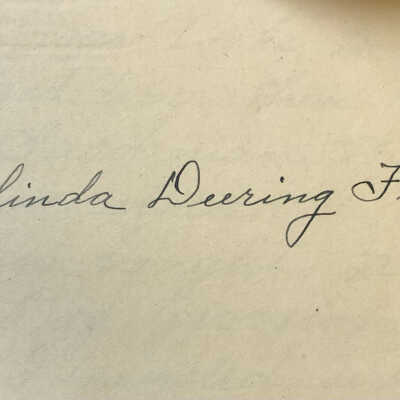 linda Deering F